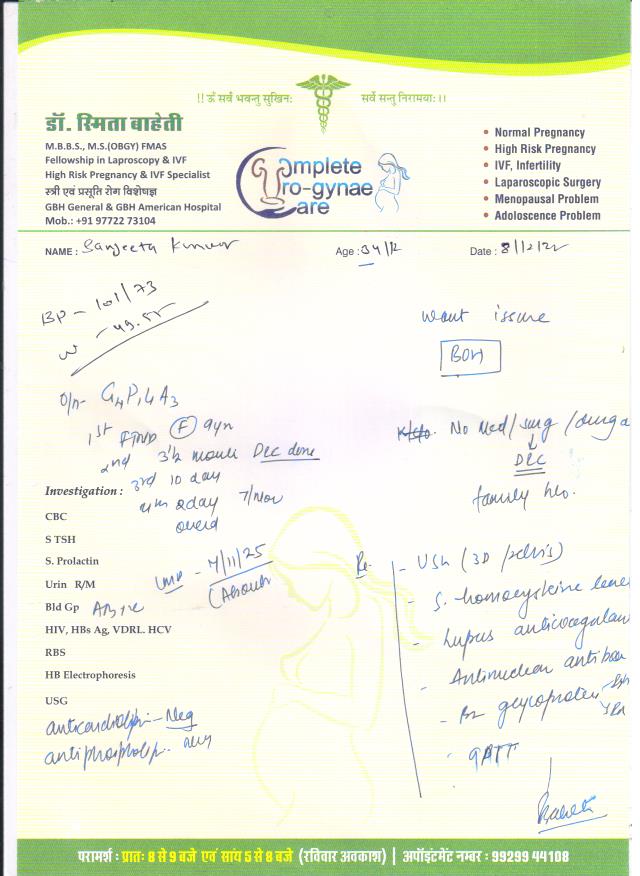 !! ॐ सर्वे भवन्तु सुखिनः सर्वे सन्तु निरामयाः।।
डॉ. स्मिता बाहेती
M.B.B.S., M.S.(OBGY) FMAS
Fellowship in Laproscopy & IVF
High Risk Pregnancy & IVF Specialist
स्त्री एवं प्रसूति रोग विशेषज्ञ
GBH General & GBH American Hospital
Mob.: +91 97722 73104
Complete
Uro-gynae
Care
• Normal Pregnancy
• High Risk Pregnancy
• IVF, Infertility
• Laparoscopic Surgery
• Menopausal Problem
• Adoloscence Problem
NAME : Sanjeeta Kunwor Age : 34 Date :
BP - 101/73
want issue
BOH
O/H- G4P1L1A3
1st FTND F 9yr
2nd 3½ month D&C done
3rd 10 day
4th 2day 7/Nov
No Med/surg
D&C
family h/o.
Investigation :
CBC
S TSH
S. Prolactin
Urin R/M
LMP - 7/11/25
Bld Gp AB+ve
HIV, HBs Ag, VDRL. HCV
RBS
HB Electrophoresis
USG
anticardiolipin - Neg
antiphospholip. neg
- USG (3D pelvis)
- S. homocysteine level
- Lupus anticoagulan
- Antinuclear antibod
- B2 glycoprotein
- GTT
परामर्श : प्रातः 8 से 9 बजे एवं सांय 5 से 8 बजे (रविवार अवकाश) | अपॉइंटमेंट नम्बर : 99299 44108